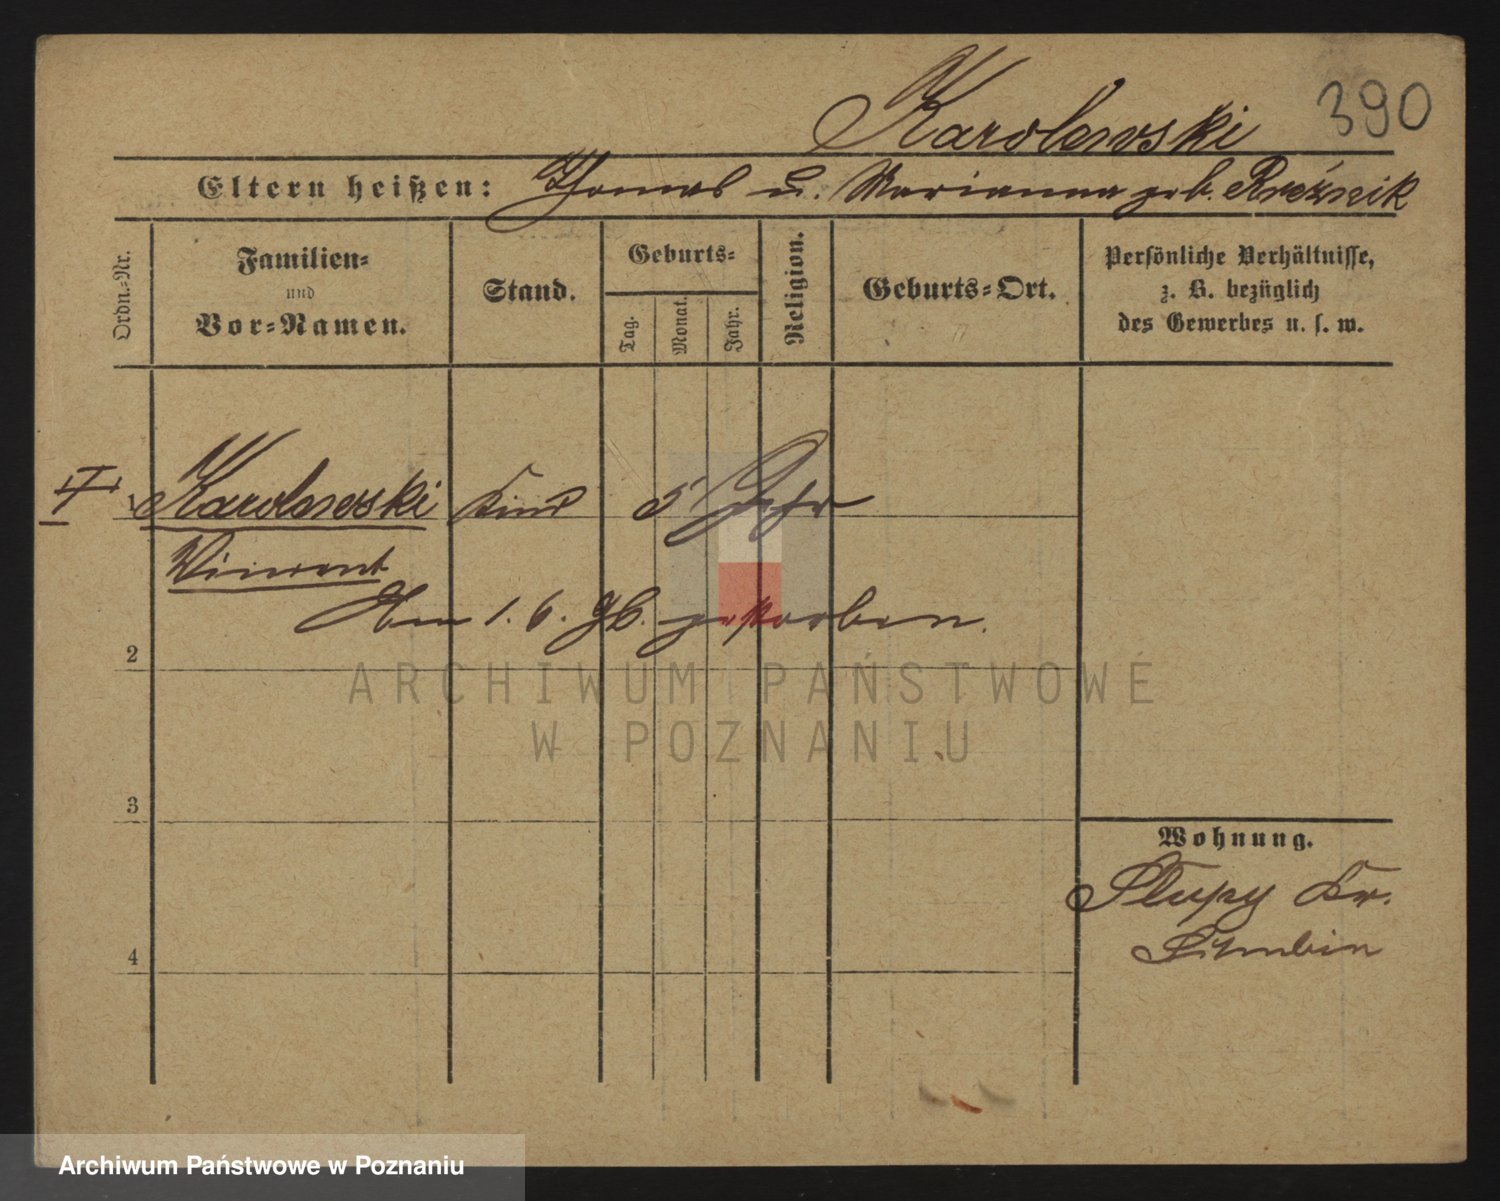 390
Karolewski
Eltern heißen: Thomas u. Marianna geb. Rzeźnik
Ordn.-Nr.
Familien-
und
Vor-Namen.
Stand.
Geburts-
Tag.
Monat.
Jahr.
Religion.
Geburts-Ort.
Persönliche Verhältnisse,
z. B. bezüglich
des Gewerbes u. s. w.
Karolewski Kind 5 Jahr
Vincent
Am 1. 6. 96. gestorben.
2
3
4
Wohnung.
Slupy Kr.
Schubin
ARCHIWUM PAŃSTWOWE
W POZNANIU
Archiwum Państwowe w Poznaniu